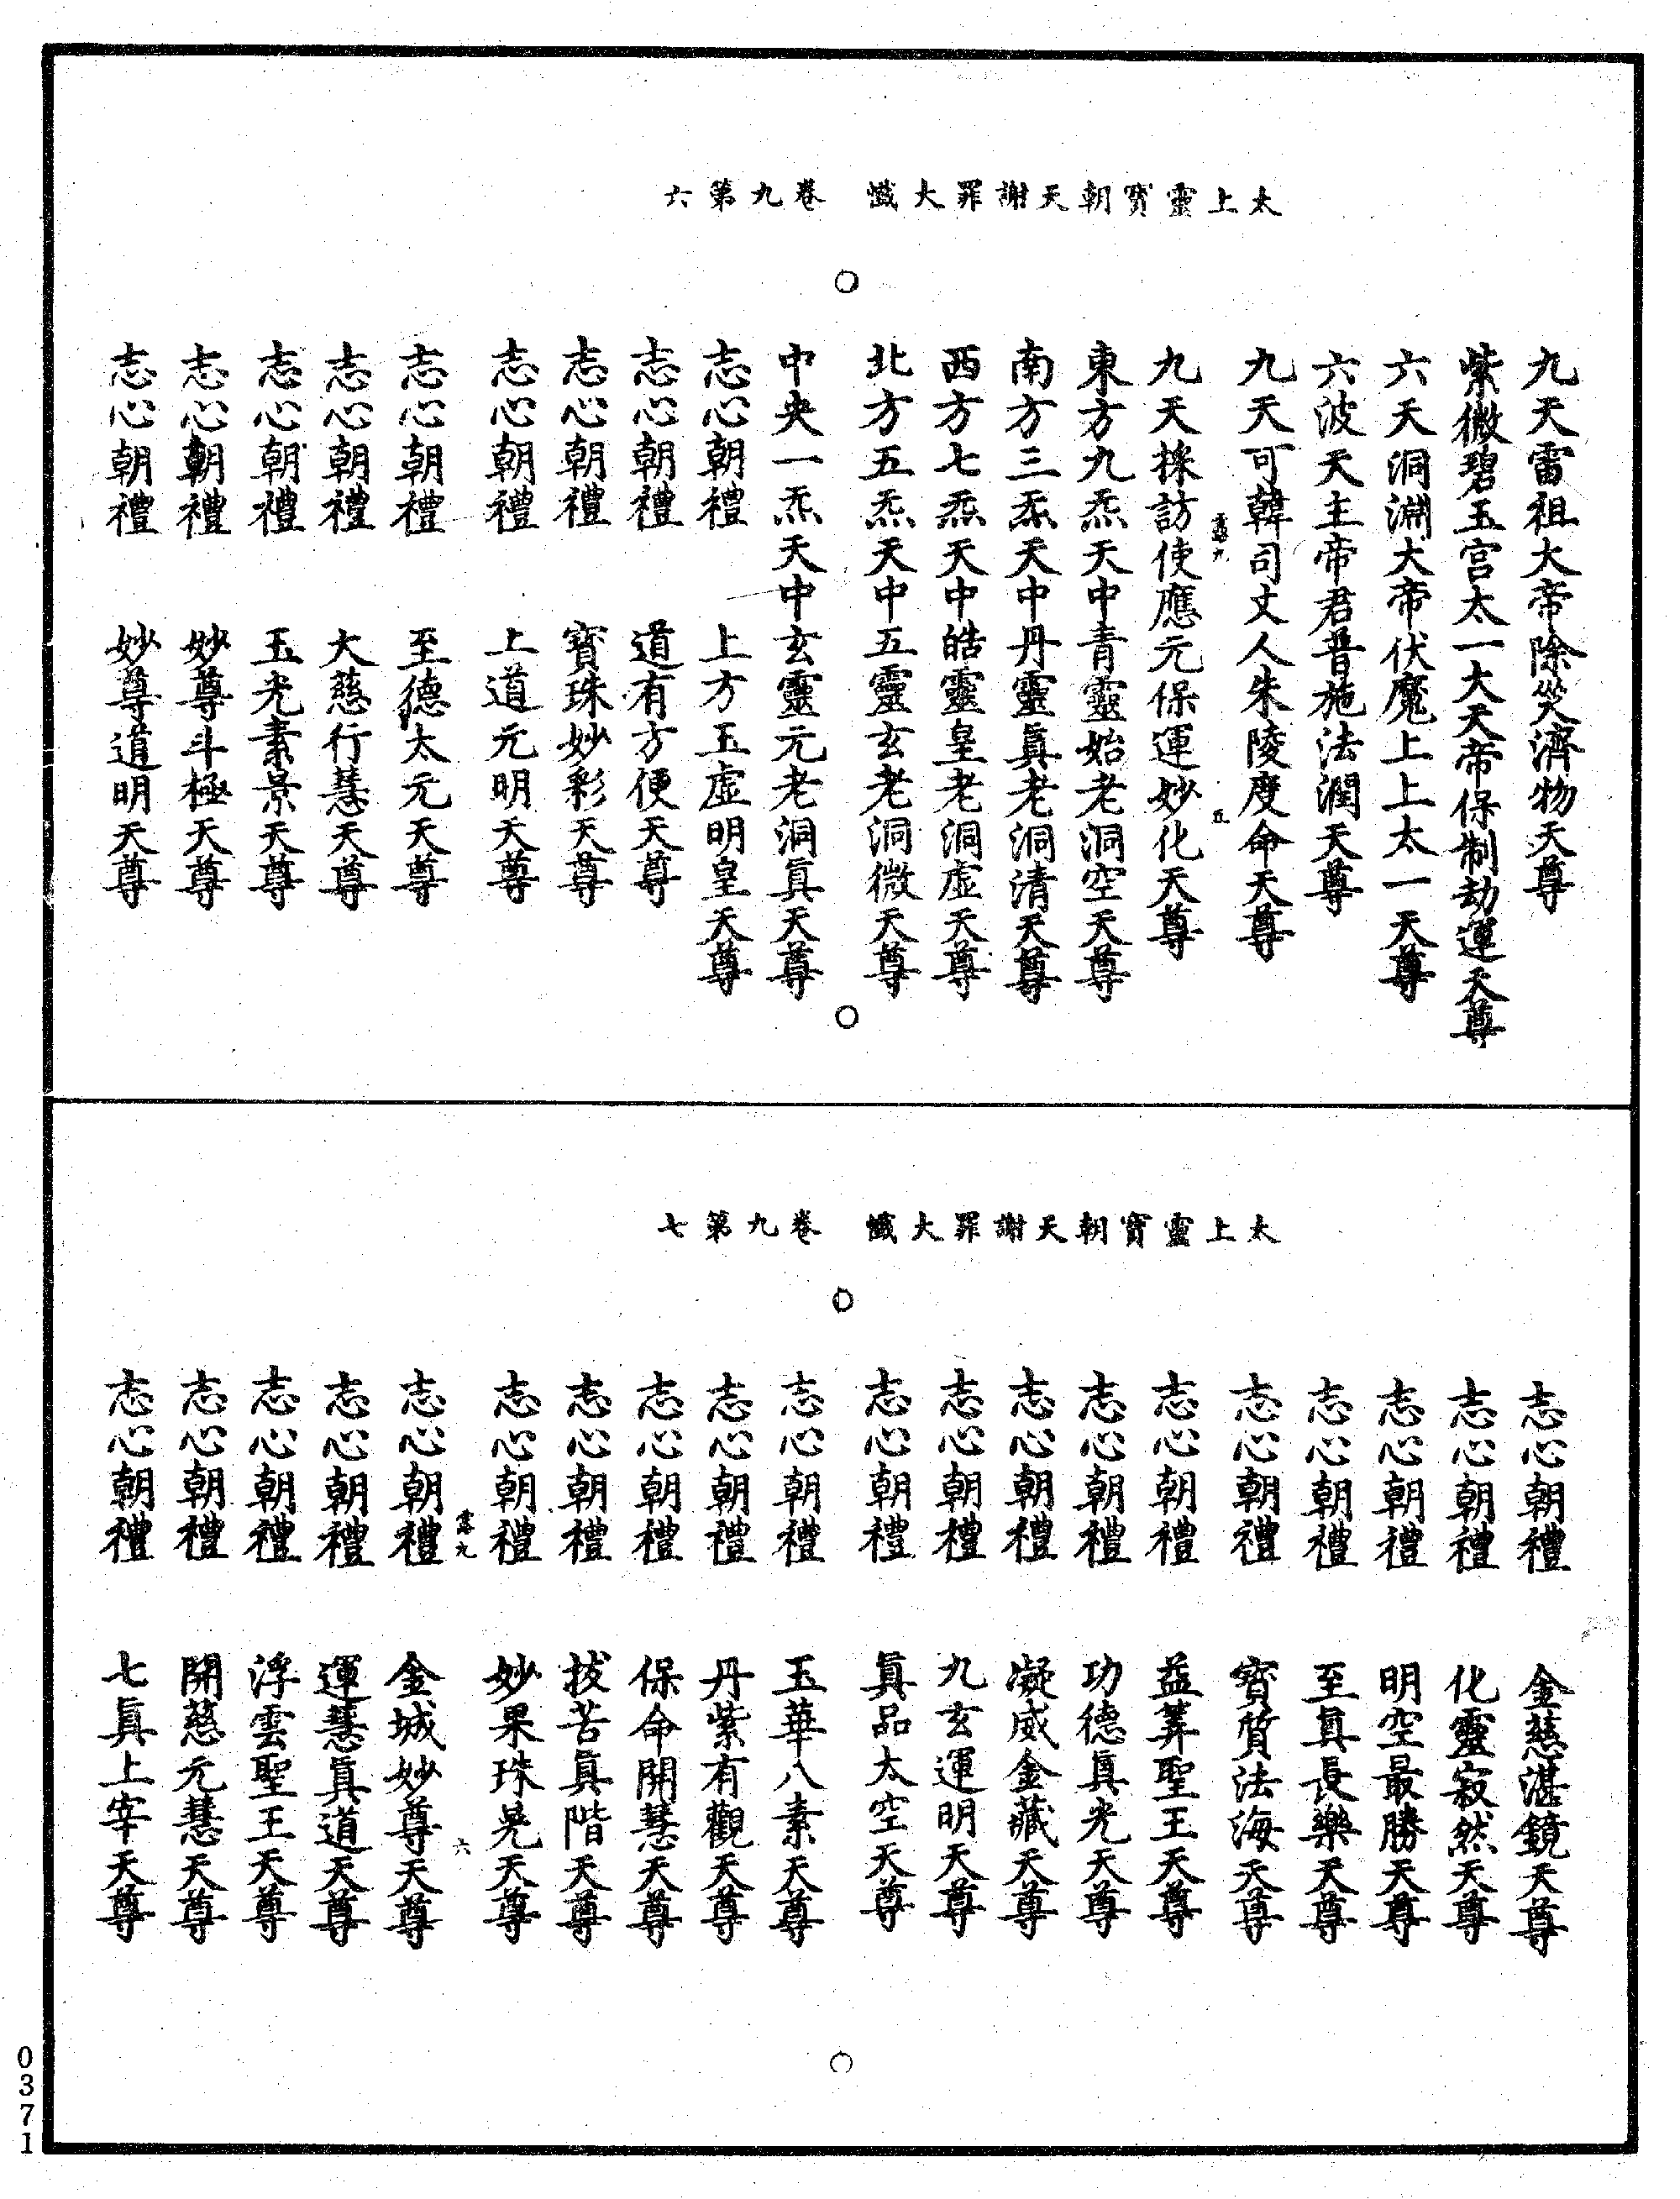 太上靈寶朝天謝罪大懺　卷九第六
九天雷祖大帝除災濟物天尊
紫微碧玉宮太一大天帝保制劫運天尊
六天洞淵大帝伏魔上上太一天尊
六波天主帝君普施法潤天尊
九天可韓司丈人朱陵度命天尊
五
九天採訪使應元保運妙化天尊
東方九炁天中青靈始老洞空天尊
南方三炁天中丹靈眞老洞清天尊
西方七炁天中皓靈皇老洞虛天尊
北方五炁天中五靈玄老洞微天尊
中央一炁天中玄靈元老洞眞天尊
志心朝禮　上方玉虛明皇天尊
志心朝禮　道有方便天尊
志心朝禮　寶珠妙彩天尊
志心朝禮　上道元明天尊
志心朝禮　至德太元天尊
志心朝禮　大慈行慧天尊
志心朝禮　玉光素景天尊
志心朝禮　妙尊斗極天尊
志心朝禮　妙尊道明天尊
太上靈寶朝天謝罪大懺　卷九第七
志心朝禮　金慈湛鏡天尊
志心朝禮　化靈寂然天尊
志心朝禮　明空最勝天尊
志心朝禮　至眞長樂天尊
志心朝禮　寶質法海天尊
志心朝禮　益筭聖王天尊
志心朝禮　功德眞光天尊
志心朝禮　凝威金藏天尊
志心朝禮　九玄運明天尊
志心朝禮　眞品太空天尊
志心朝禮　玉華八素天尊
志心朝禮　丹紫有觀天尊
志心朝禮　保命開慧天尊
志心朝禮　拔苦眞階天尊
志心朝禮　妙果珠晃天尊
六
志心朝禮　金城妙尊天尊
志心朝禮　運慧眞道天尊
志心朝禮　浮雲聖王天尊
志心朝禮　開慈元慧天尊
志心朝禮　七眞上宰天尊
0371